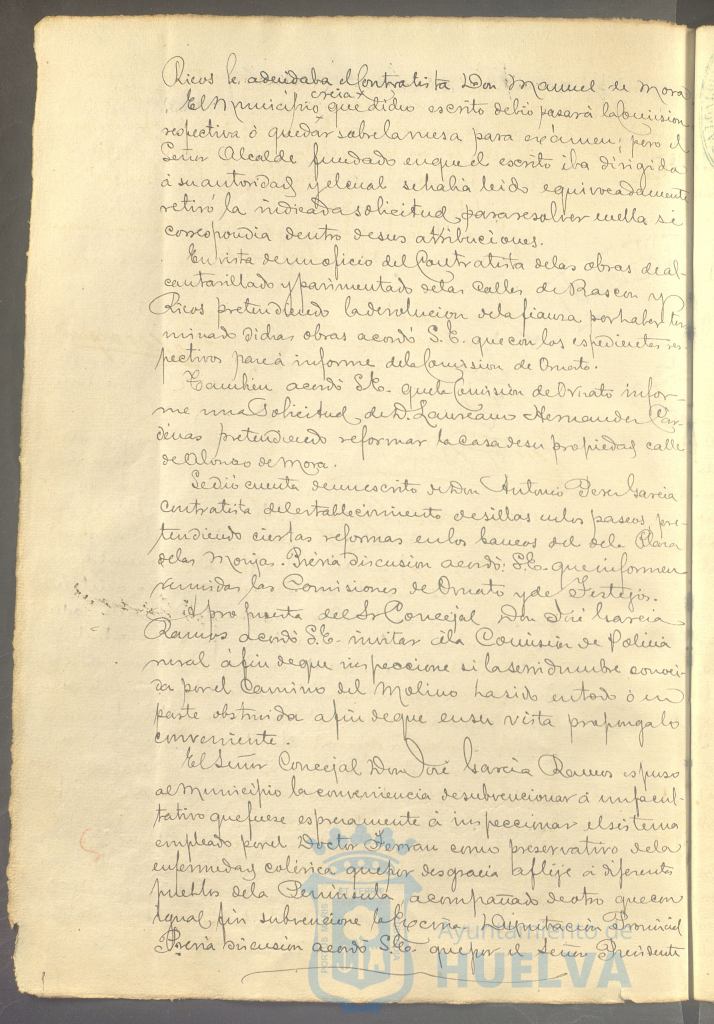 Ricos le adeudaba el Contratista Don Manuel de Mora
creia
El Municipio que dicho escrito debio pasar á la Comision
respectiva ó quedar sobre la mesa para exámen; pero el
Señor Alcalde fundado en que el escrito iba dirigida
á su autoridad y el cual se habia leido equivocadamente
retiró la indicada solicitud para resolver en ella si
correspondia dentro de sus atribuciones.
En vista de un oficio del Contratista de las obras de al-
cantarillado y pavimentado de las calles de Rascon y
Ricos pretendiendo la devolucion de la fianza por haber ter
minado dichas obras acordó S.E. que con los espedientes res
pectivos pase á informe de la Comision de Ornato.
Tambien acordó S.E. que la Comision de Ornato infor-
me una solicitud de D. Laureano Hernandez Car
denas pretendiendo reformar la casa de su propiedad calle
de Alonso de Mora.
Se dió cuenta de un escrito de Don Antonio Perez Garcia
contratista del establecimiento de sillas en los paseos, pre-
tendiendo ciertas reformas en los bancos del de la Plaza
de las Monjas. Prévia discusion acordó S.E. que informen
reunidas las Comisiones de Ornato y de Festejos.
A propuesta del Sr Concejal Don José Garcia
Ramos acordó S.E. invitar á la Comision de Policia
rural á fin de que inspeccione si la servidumbre conoci-
da por el Camino del Molino ha sido en todo ó en
parte obstruida a fin de que en su vista proponga lo
conveniente.
El Señor Concejal Don José Garcia Ramos espuso
al Municipio la conveniencia de subvencionar á un facul-
tativo que fuese espresamente á inspeccionar el sistema
empleado por el Doctor Ferran como preservativo de la
enfermedad colérica que por desgracia aflije á diferentes
pueblos de la Peninsula, acompañado de otro que con
igual fin subvencione la Excma Diputacion Provincial
Prévia discusion acordó S.E. que por el Señor Presidente
Ayuntamiento de
HUELVA